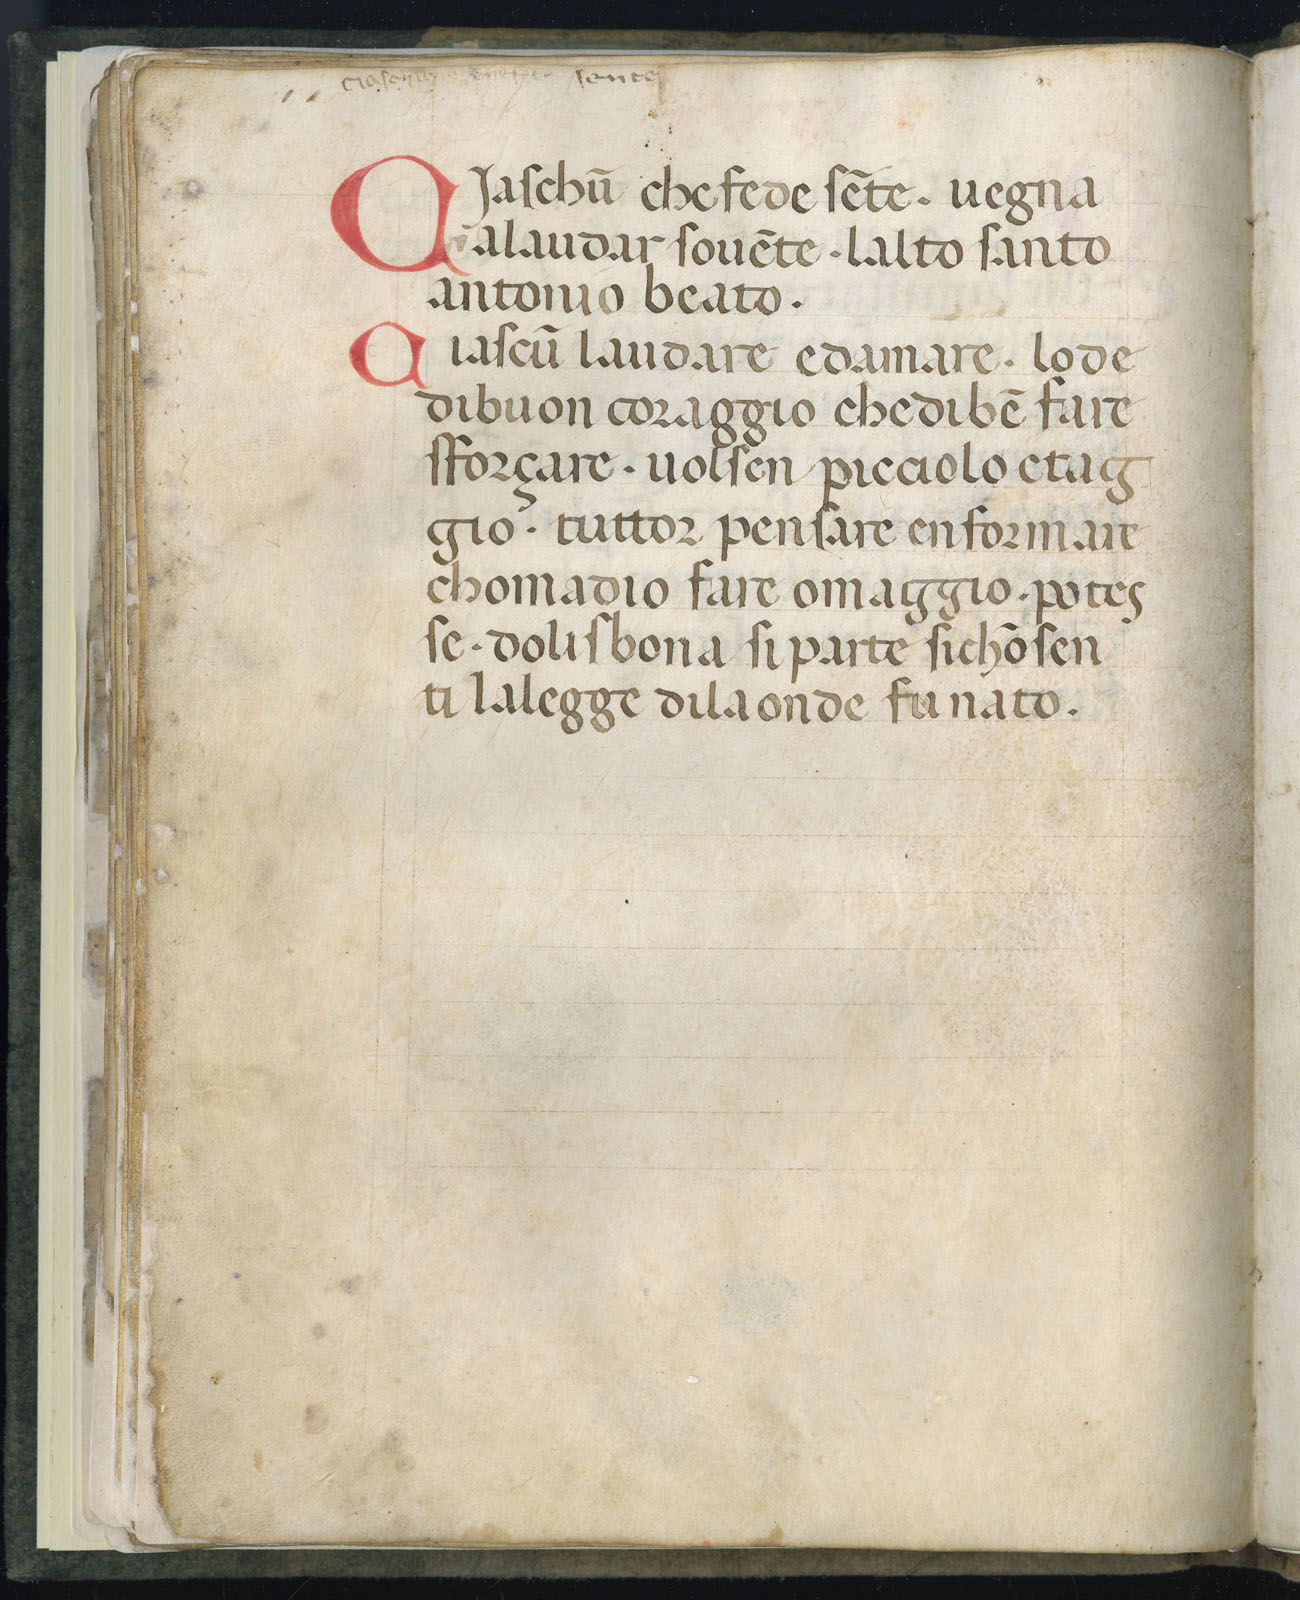 sente
QJaſchū che fede ſēte. uegna
alaudar ſouēte. lalto ſanto
antonio beato.
Qiaſcū laudare edamare. lode
dibuon coraggio chedibē fare
ſforçare. uolſen picciolo etag
gio. tuttor penſare enformare
chomadio fare omaggio. poteſ
ſe. doliſbona ſi parte ſichōſen
ti lalegge dilaonde fu nato.